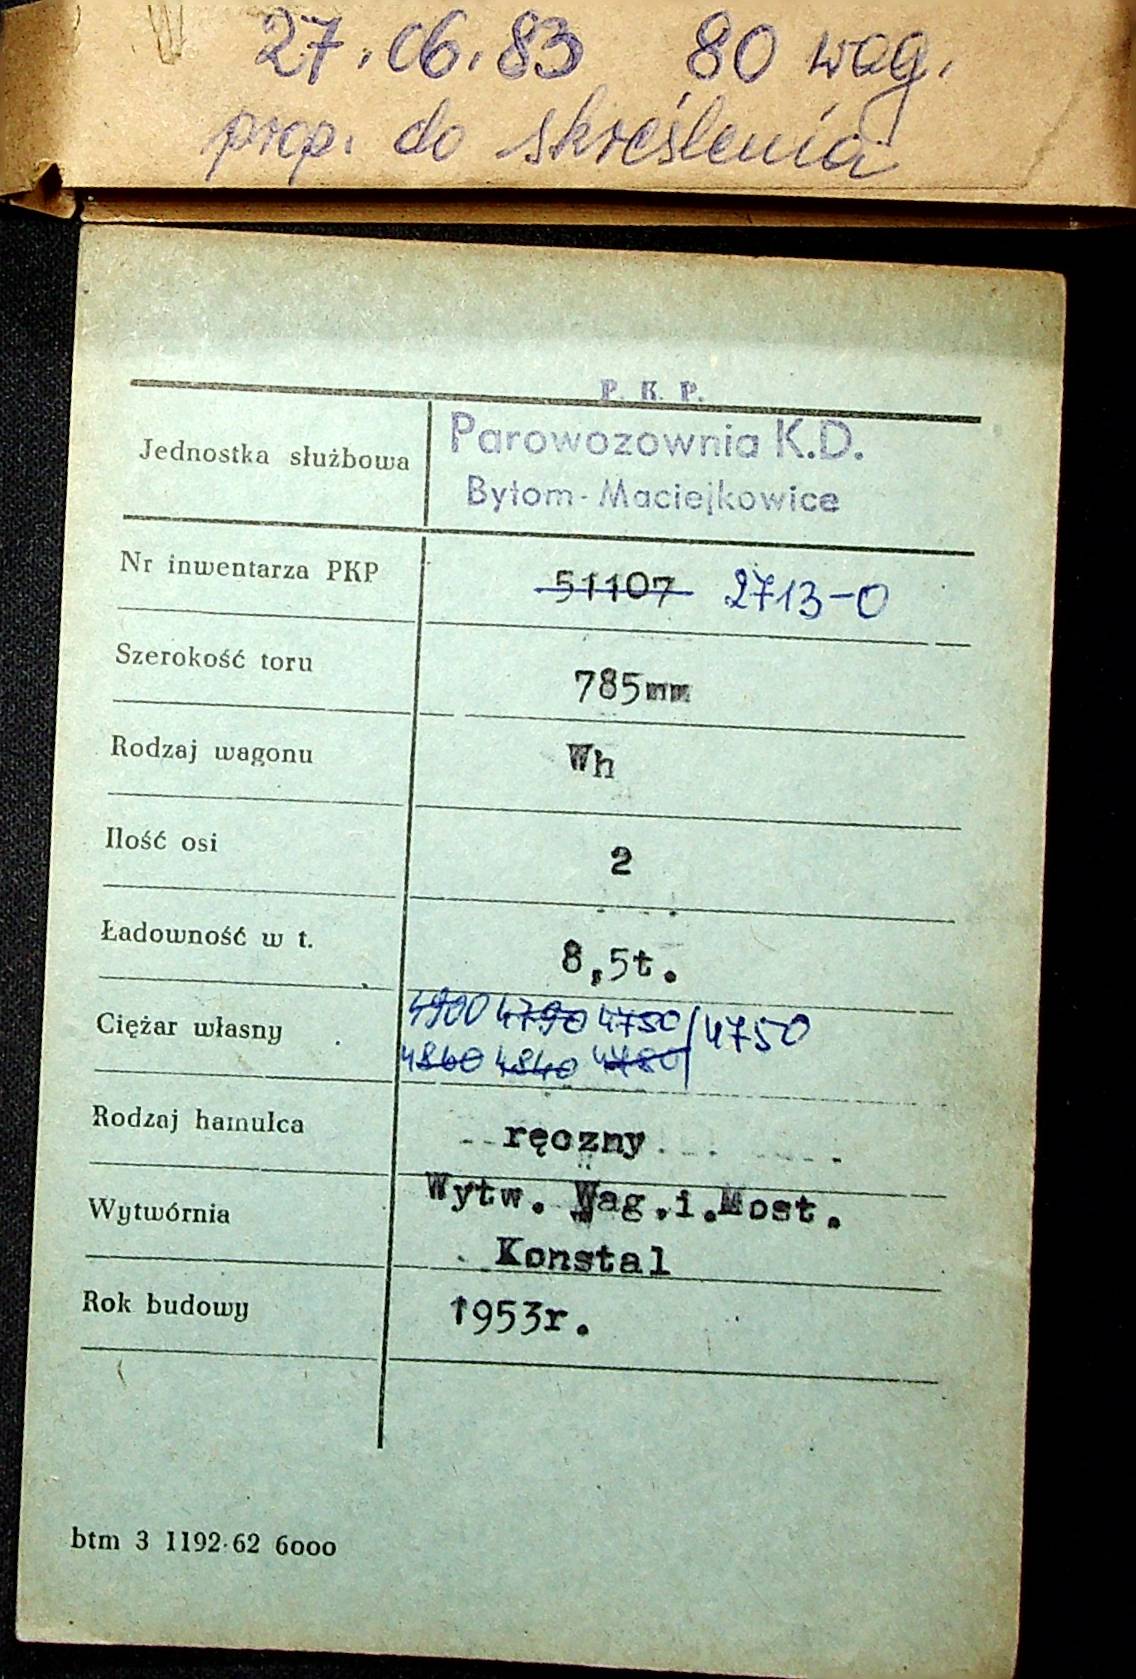 27.06.83 80 wag.
prop. do skreślenia
P. K. P.
Jednostka służbowa Parowozownia K.D.
Bytom-Maciejkowice
Nr inwentarza PKP 51107 2713-0
Szerokość toru 785mm
Rodzaj wagonu Wh
Ilość osi 2
Ładowność w t. 8,5t.
Ciężar własny 4900 4790 4750 / 4750
4860 4840 4780
Rodzaj hamulca ręczny
Wytwórnia Wytw. Wag.i.Most.
Konstal
Rok budowy 1953r.
btm 3 1192-62 6000